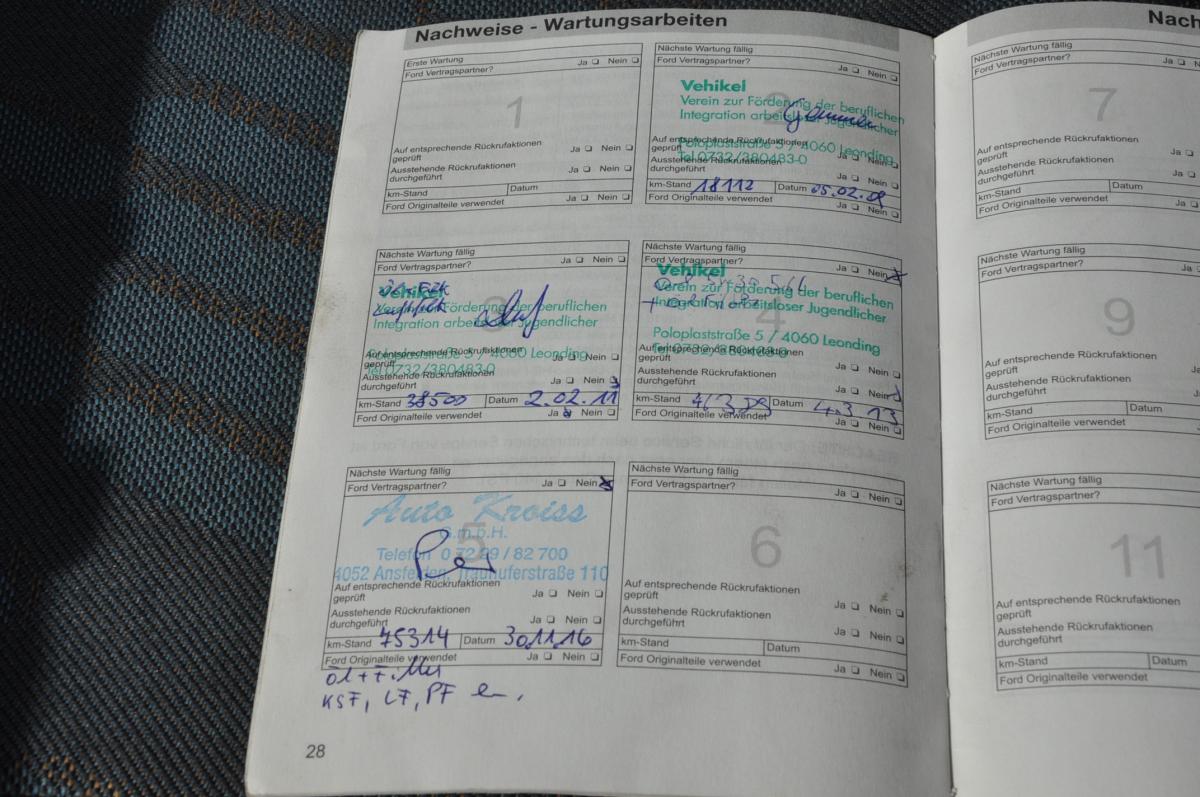 Nachweise - Wartungsarbeiten
Erste Wartung
Ford Vertragspartner? Ja Nein
1
Auf entsprechende Rückrufaktionen
geprüft Ja Nein
Ausstehende Rückrufaktionen
durchgeführt Ja Nein
km-Stand Datum
Ford Originalteile verwendet Ja Nein
Nächste Wartung fällig
Ford Vertragspartner? Ja Nein
2
Vehikel
Verein zur Förderung der beruflichen
Integration arbeitsloser Jugendlicher
Poloplaststraße 5 / 4060 Leonding
Tel.0732/380483-0
Auf entsprechende Rückrufaktionen
geprüft Ja Nein
Ausstehende Rückrufaktionen
durchgeführt Ja Nein
km-Stand 18112 Datum 05.02.09
Ford Originalteile verwendet Ja Nein
Nächste Wartung fällig
Ford Vertragspartner? Ja Nein
3
Vehikel
Verein zur Förderung der beruflichen
Integration arbeitsloser Jugendlicher
Poloplaststraße 5 / 4060 Leonding
Tel.0732/380483-0
Auf entsprechende Rückrufaktionen
geprüft Ja Nein
Ausstehende Rückrufaktionen
durchgeführt Ja Nein
km-Stand 38500 Datum 2.02.11
Ford Originalteile verwendet Ja Nein
Nächste Wartung fällig
Ford Vertragspartner? Ja Nein
4
Vehikel
Verein zur Förderung der beruflichen
Integration arbeitsloser Jugendlicher
Poloplaststraße 5 / 4060 Leonding
Auf entsprechende Rückrufaktionen
geprüft
Ausstehende Rückrufaktionen
durchgeführt Ja Nein
km-Stand Datum 4.3.13
Ford Originalteile verwendet Ja Nein
Nächste Wartung fällig
Ford Vertragspartner? Ja Nein
5
Auto Kroiss
G.m.b.H.
Telefon 0 72 29 / 82 700
4052 Ansfelden, Traunuferstraße 110
Auf entsprechende Rückrufaktionen
geprüft Ja Nein
Ausstehende Rückrufaktionen
durchgeführt Ja Nein
km-Stand 75314 Datum 30.11.16
Ford Originalteile verwendet Ja Nein
Öl + Filter
KSF, LF, PF
Nächste Wartung fällig
Ford Vertragspartner? Ja Nein
6
Auf entsprechende Rückrufaktionen
geprüft Ja Nein
Ausstehende Rückrufaktionen
durchgeführt Ja Nein
km-Stand Datum
Ford Originalteile verwendet Ja Nein
28
Nach
Nächste Wartung fällig
Ford Vertragspartner? Ja
7
Auf entsprechende Rückrufaktionen
geprüft Ja
Ausstehende Rückrufaktionen
durchgeführt Ja
km-Stand Datum
Ford Originalteile verwendet Ja
Nächste Wartung fällig
Ford Vertragspartner?
9
Auf entsprechende Rückrufaktionen
geprüft
Ausstehende Rückrufaktionen
durchgeführt
km-Stand Datum
Ford Originalteile verwendet
Nächste Wartung fällig
Ford Vertragspartner?
11
Auf entsprechende Rückrufaktionen
geprüft
Ausstehende Rückrufaktionen
durchgeführt
km-Stand Datum
Ford Originalteile verwendet